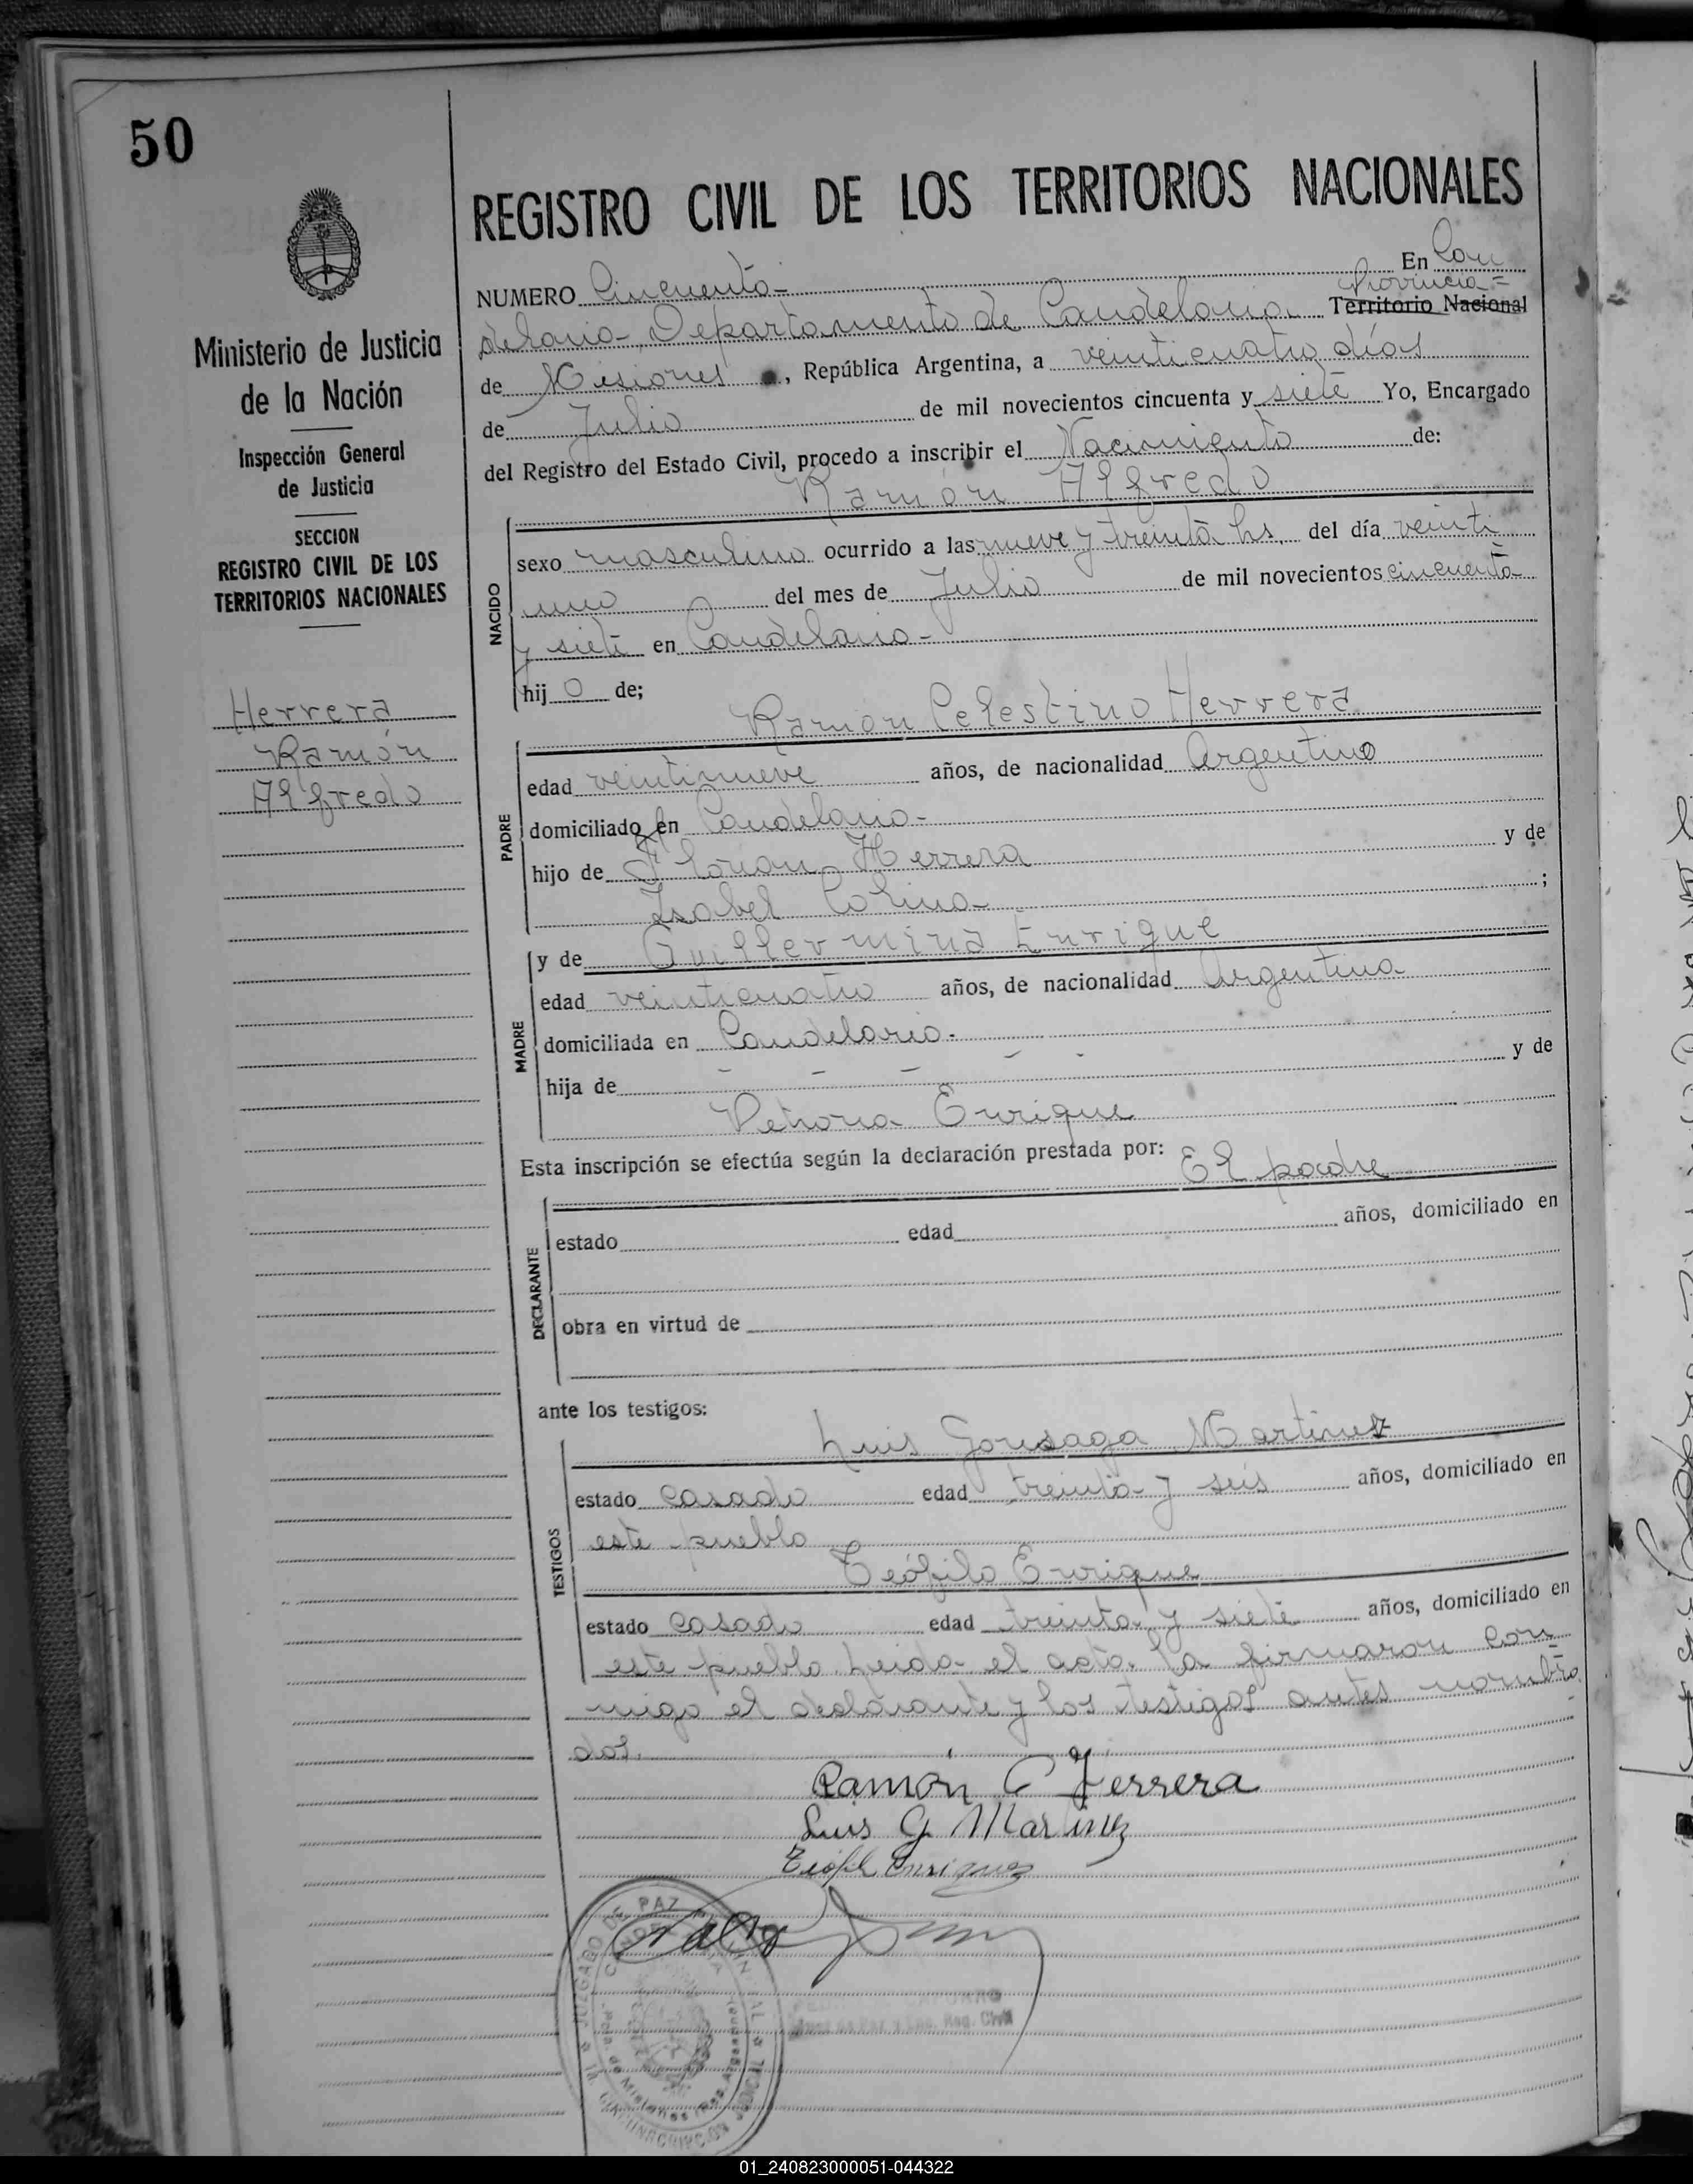 50
REGISTRO CIVIL DE LOS TERRITORIOS NACIONALES
NUMERO Cincuenta- En Can
Provincia=
delaria- Departamento de Candelaria. Territorio Nacional
de Misiones , República Argentina, a veinticuatro días
de Julio de mil novecientos cincuenta y siete Yo, Encargado
del Registro del Estado Civil, procedo a inscribir el Nacimiento de:
Ramón Alfredo
Ministerio de Justicia
de la Nación
Inspección General
de Justicia
SECCION
REGISTRO CIVIL DE LOS
TERRITORIOS NACIONALES
Herrera
Ramón
Alfredo
NACIDO
sexo masculino ocurrido a las nueve y treinta hs. del día veinti
uno del mes de Julio de mil novecientos cincuenta
y siete en Candelaria-
hij o de;
Ramón Celestino Herrera
PADRE
edad veintinueve años, de nacionalidad Argentino
domiciliado en Candelaria-
hijo de Florian Herrera y de
Isabel Colina- ;
y de Guillermina Enrique
MADRE
edad veinticuatro años, de nacionalidad Argentina
domiciliada en Candelaria-
hija de - - - - - y de
Enrique
Esta inscripción se efectúa según la declaración prestada por: El padre
DECLARANTE
estado edad años, domiciliado en
obra en virtud de
ante los testigos:
Luis Gonsaga Martinez
TESTIGOS
estado casado edad treinta y seis años, domiciliado en
este pueblo
Teófilo Enrique
estado casado edad treinta y siete años, domiciliado en
este pueblo. Leida el acta. La firmaron con-
migo el declarante y los testigos antes nombra
dos.
Ramón C Herrera
Luis G Martinez
Teofil Enriquez
JUZGADO DE PAZ
CANDELARIA
Pcia. de Misiones Rep. Argentina
CIRCUNSCRIPCION JUDICIAL
Juez de Paz y Enc. Reg. Civil
01_240823000051-044322